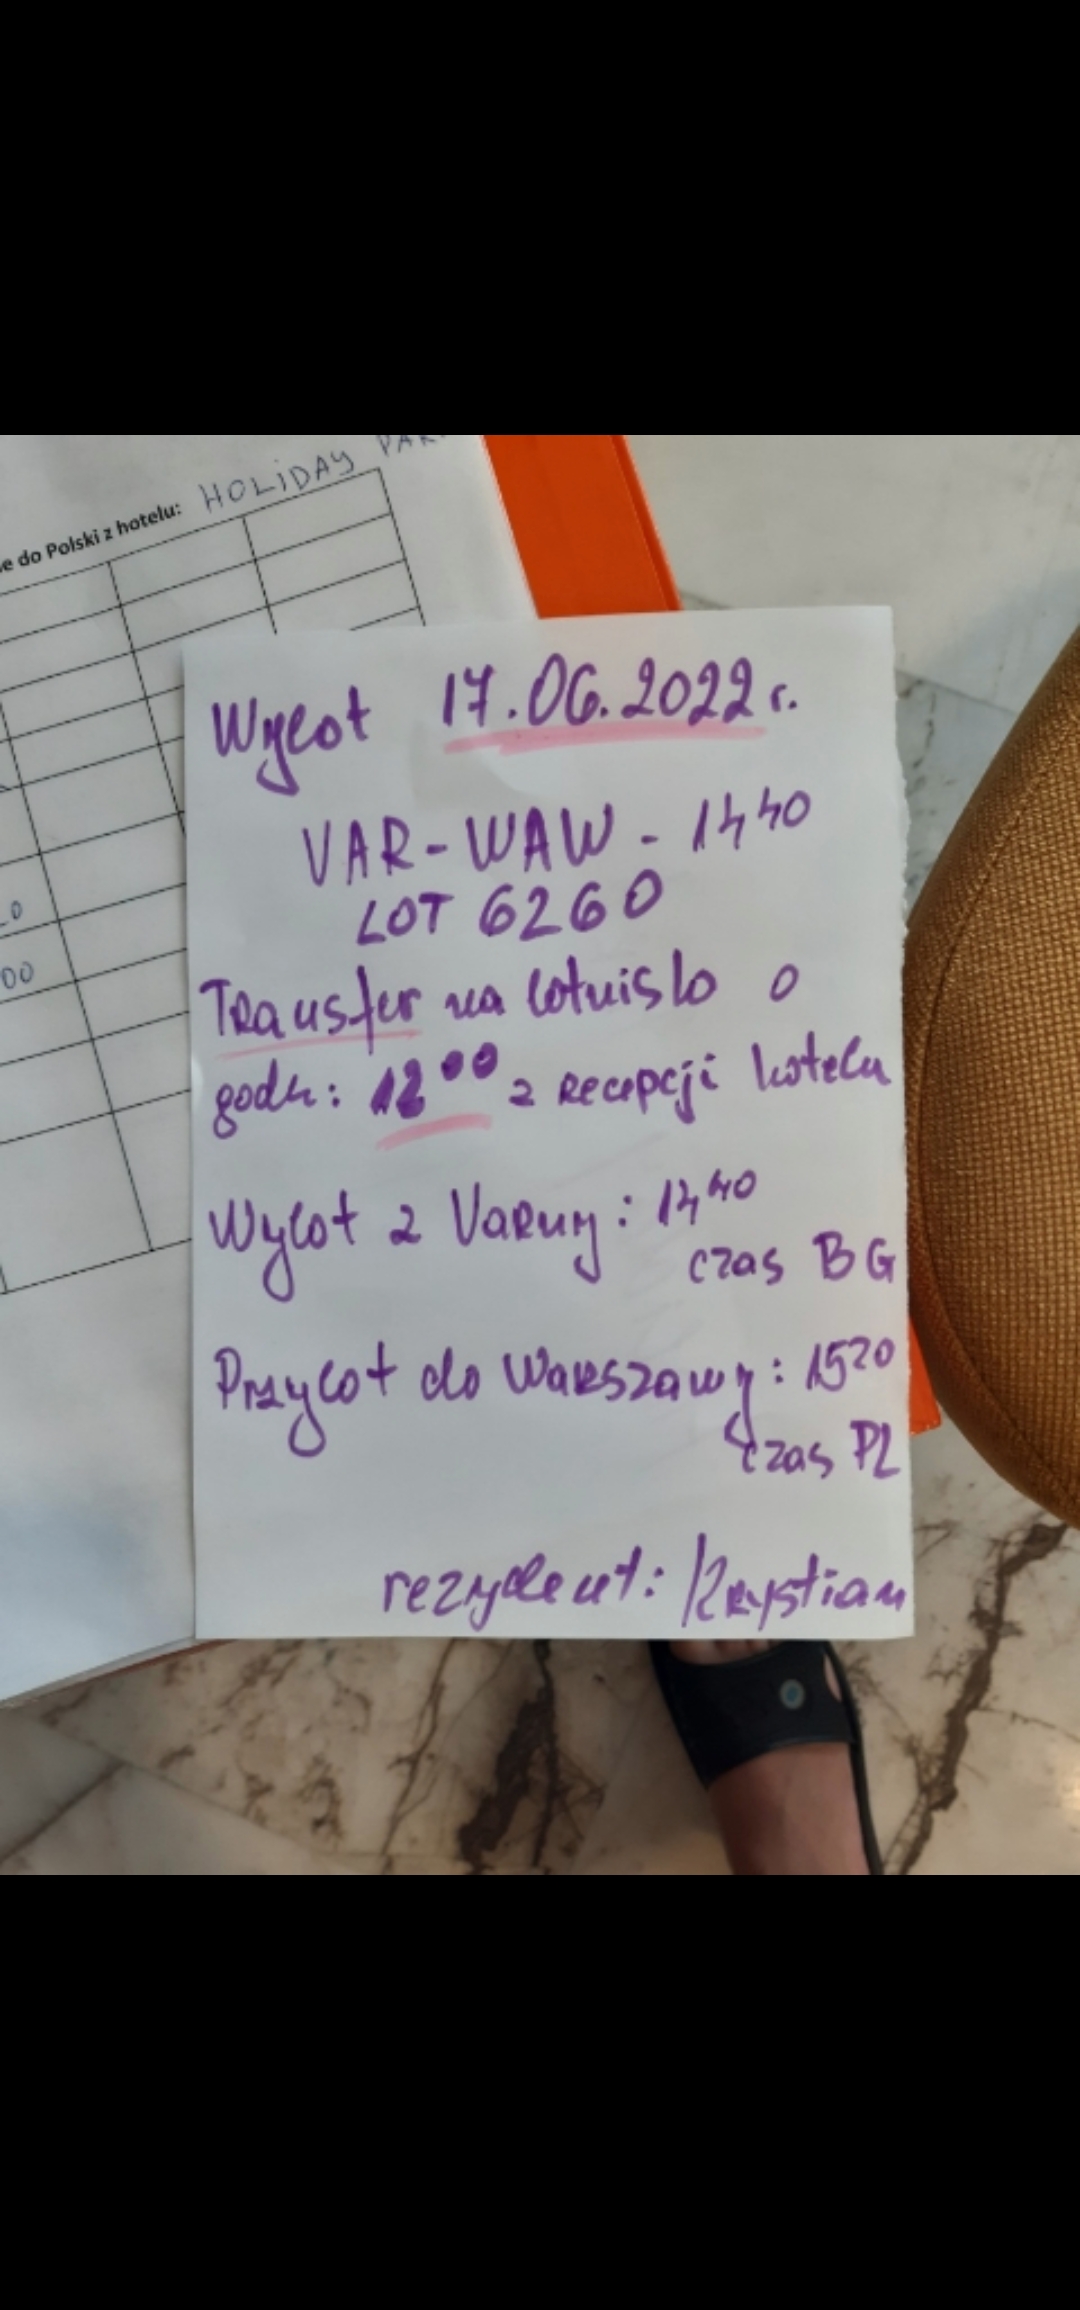 e do Polski z hotelu: HOLIDAY PAR
20
00
Wylot 17.06.2022 r.
VAR-WAW - 14 40
LOT 6260
Transfer na lotnisko o
godz: 12 00 z recepcji hotelu
Wylot z Varny: 14 40
czas BG
Przylot do Warszawy: 15 20
czas PL
rezydent: Krystian